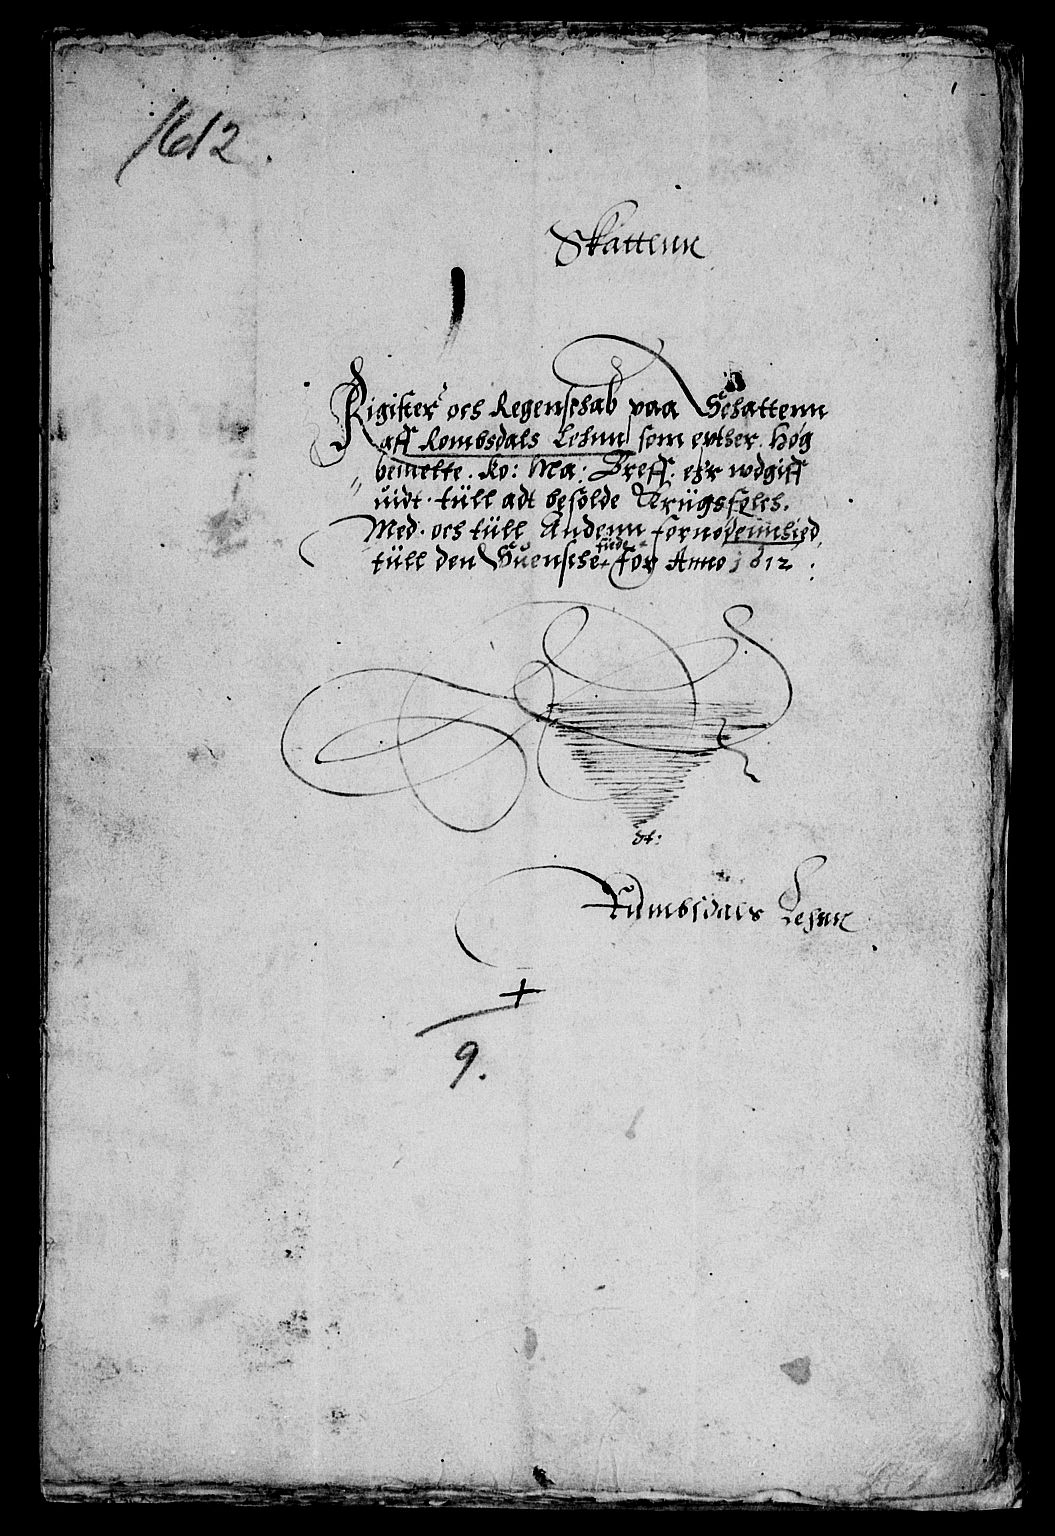 1612.
Skattenn
Rigister och Regenschab paa Schattenn
aff Rombsdals Lehnn som epther Høg
bemelte. Ko: Ma: Breff. ehr wdgiff
uidt. tüll adt besolde Krügsfolch.
Med. och tüll Andenn fornødennhied
tüll den Suensche feide for Anno 1612.
Rumbsdals Lehnn
9.